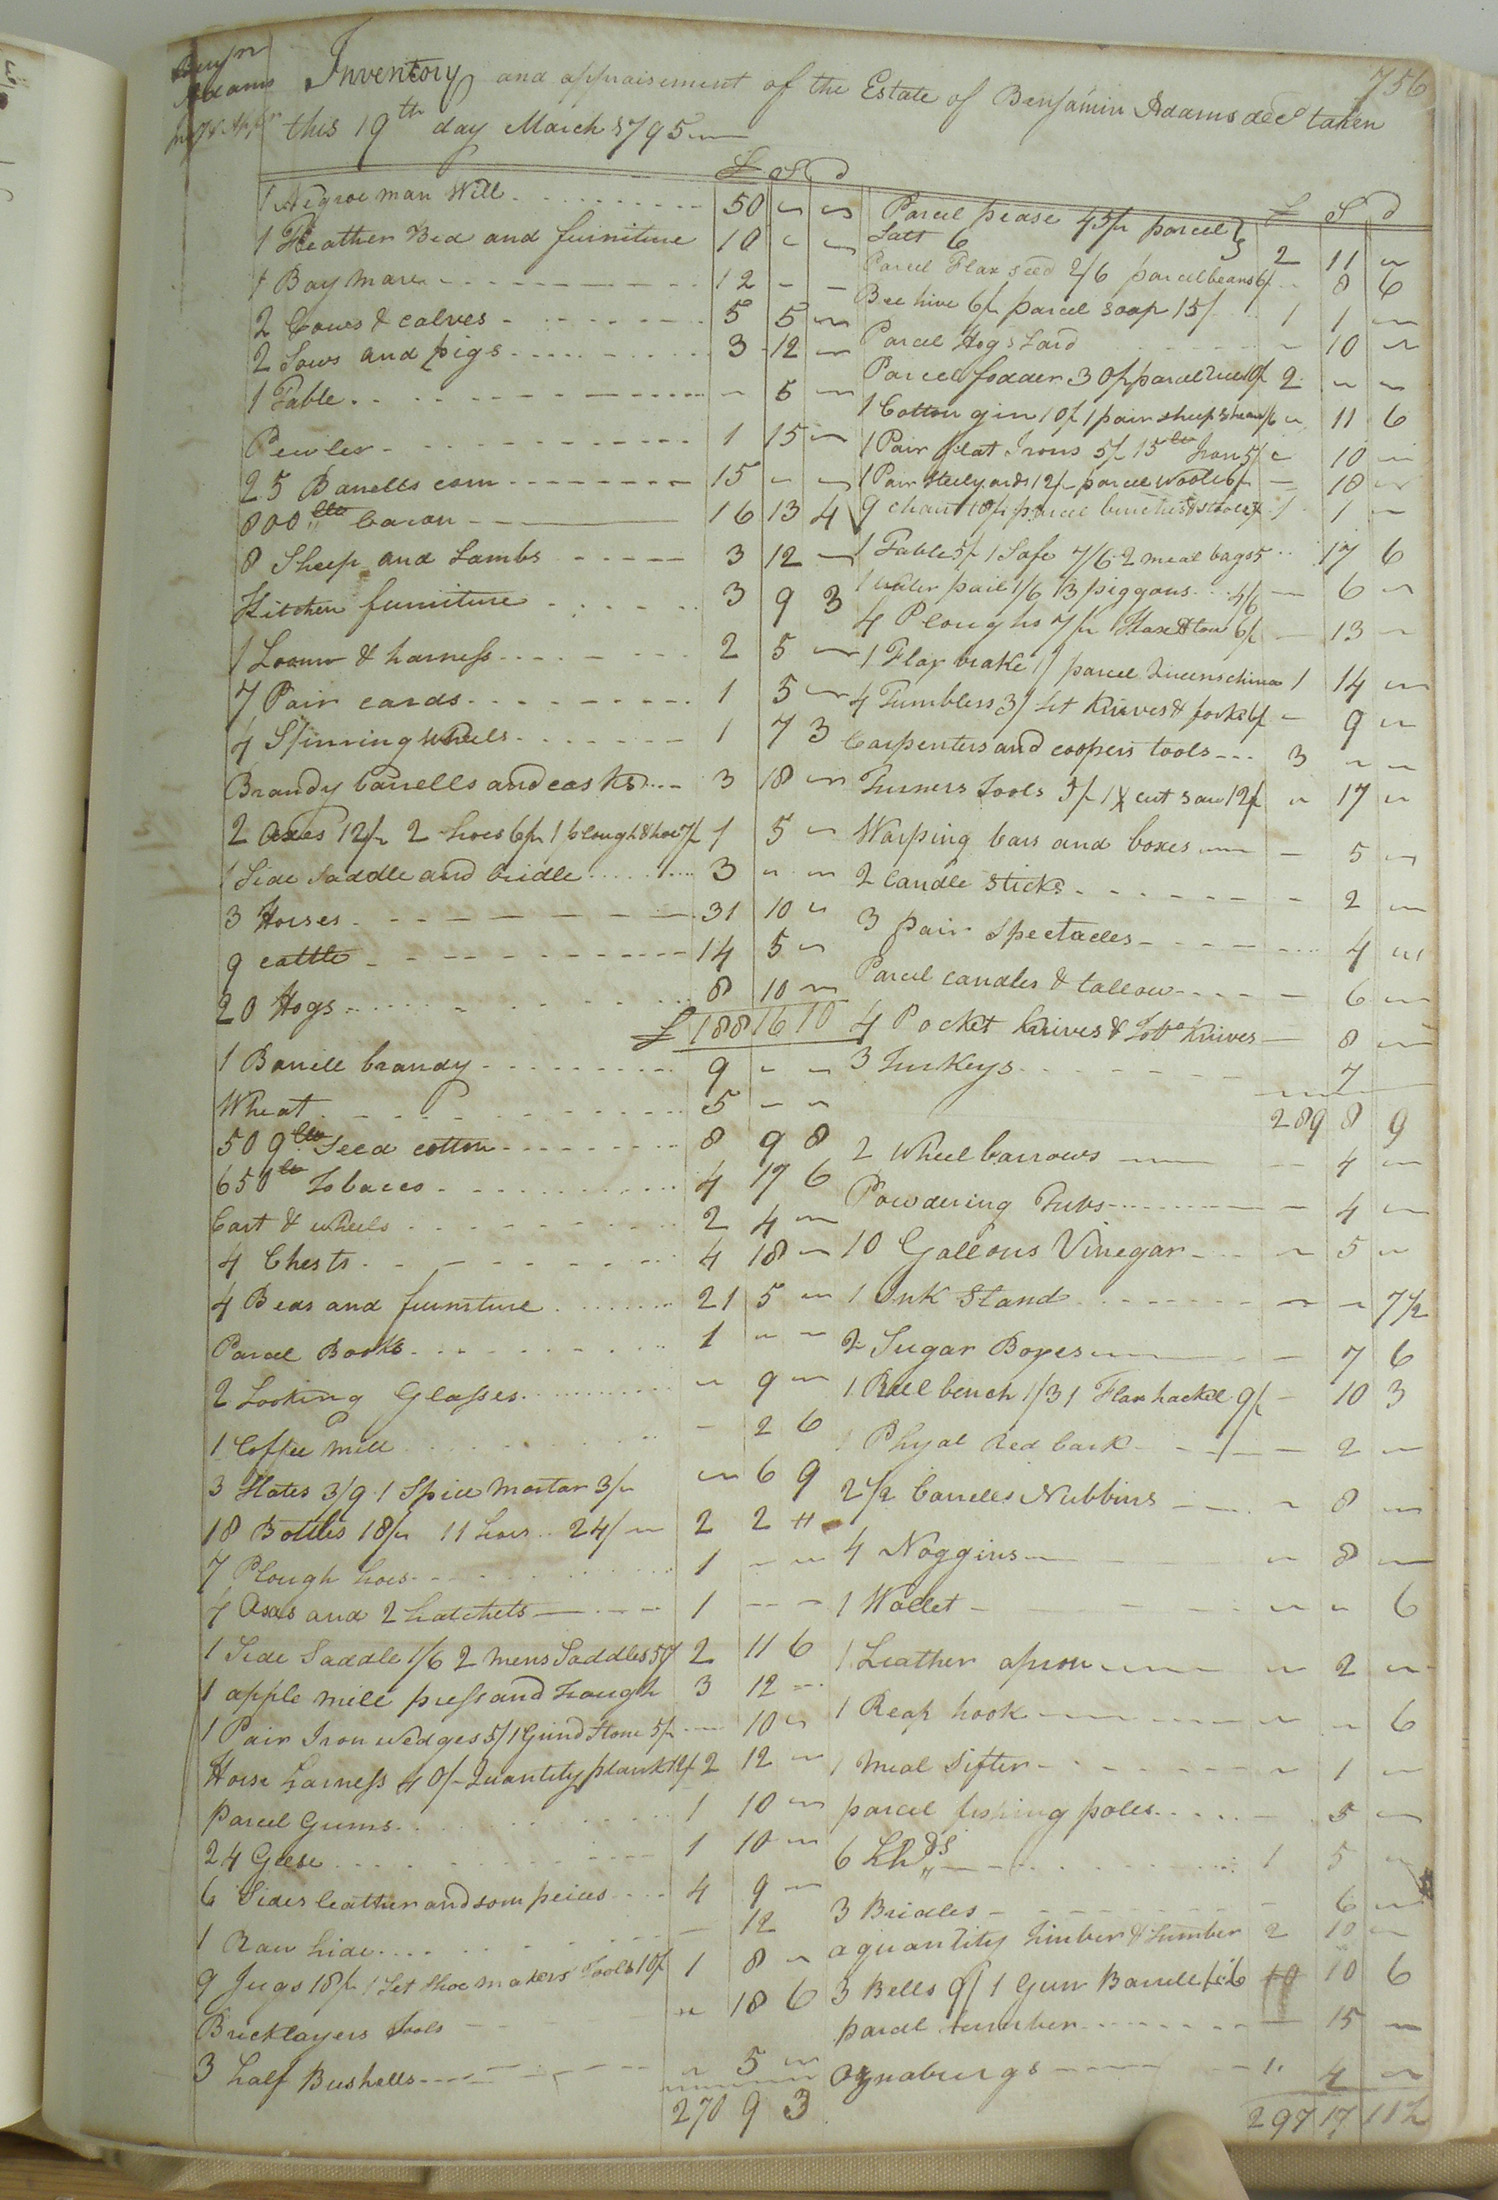 Benjn
Adams
Inventory and appraisement of the Estate of Benjamin Adams decd taken
this 19th day March 1795
756
£ S d
1 Negroe man Will 50 ~ ~
1 Feather Bed and furniture 10 ~ ~
1 Bay mare 12 - -
2 Cows & calves 5 5 ~
2 Sows and pigs 3 12 ~
1 Table ~ 5 ~
Pewter 1 15 ~
25 Barrells corn 15 ~ ~
800 lbs bacon 16 13 4
8 Sheep and Lambs 3 12 ~
Kitchen furniture 3 9 3
1 Loom & harness 2 5 ~
7 Pair cards 1 5 ~
4 Spinning wheels 1 7 3
Brandy barrells and casks 3 18 ~
2 Axes 12/ 2 hoes 6/ 1 plough & hoe 7/ 1 5 ~
1 Side Saddle and bridle 3 ~ ~
3 Horses 31 10 ~
9 cattle 14 5 ~
20 Hogs 8 10 ~
£ 188 16 10
1 Barrell brandy 9 ~ ~
Wheat 5 ~ ~
509 lbs Seed cotton 8 9 8
650 lbs Tobacco 4 17 6
Cart & wheels 2 4 ~
4 Chests 4 18 ~
4 Beds and furniture 21 5 ~
Parcel Books 1 ~ ~
2 Looking Glasses ~ 9 ~
1 Coffee mill - 2 6
3 Slates 3/9 1 Spice mortar 3/ ~ 6 9
18 Bottles 18/ 11 hoes 24/ 2 2 "
7 Plough hoes 1 ~ ~
4 Axes and 2 hatchets 1 - -
1 Side Saddle 1/6 2 mens Saddles 50/ 2 11 6
1 apple mill press and trough 3 12 -
1 Pair Iron wedges 5/ 1 Grind Stone 5/ ~ 10 ~
Horse harness 40/ Quantity plank 12/ 2 12 ~
parcel Gums 1 10 ~
24 Geese 1 10 ~
6 Sides leather and som peices 4 9 ~
1 Raw hide - 12
9 Jugs 18/ 1 Set Shoe makers Tools 10/ 1 8 ~
Bricklayers Tools ~ 18 6
3 half Bushells ~ 5 ~
270 9 3
£ S d
Parcel pease 45/ parcel
Salt 6 2 11 ~
Parcel Flax seed 2/6 parcel beans 6/ 8 6
Bee hive 6/ parcel soap 15/ 1 1 ~
Parcel Hogs Lard ~ 10 ~
Parcel fodder 30/ parcel 2 ~ ~
1 Cotton gin 10/ 1 pair sheep shears 1/6 ~ 11 6
1 Pair flat Irons 5/ 15 lb Iron 5/ 10 ~
1 Pair Steelyards 12/ parcel Wool 6/ - 18 ~
9 chairs 18/ parcel benches & stools 1 1 ~
1 Table 5/ 1 Safe 7/6 2 meal bags 5 17 6
1 water pail 1/6 3 piggons 4/6 - 6 ~
4 Ploughs 7/ Flax & tow 6/ - 13 ~
1 Flax brake 1/ parcel Queens china 1 14 ~
4 Tumblers 3/ Set Knives & forks 6/ - 9 ~
Carpenters and coopers tools 3 ~ ~
Turners Tools 5/ 1 X cut saw 12/ ~ 17 ~
Warping bars and boxes - 5 ~
2 Candle Sticks - 2 ~
3 pair Spectacles 4 ~
Parcel candles & tallow - 6 ~
4 Pocket Knives & Toba Knives - 8 ~
3 Turkeys 7
289 8 9
2 Wheel barrows - 4 ~
Powdering Tubs - 4 ~
10 Gallons Vinegar ~ 5 ~
1 Ink Stand ~ ~ 7 1/2
2 Sugar Boxes - 7 6
1 Reel bench 1/3 1 Flax hackel 9/ - 10 3
1 Phyal Red bark - 2 ~
2 1/2 barrells Nubbins ~ 8 ~
4 Noggins ~ 8 ~
1 Wallet ~ ~ 6
1 Leather apron ~ 2 ~
1 Reap hook ~ ~ 6
1 Meal Sifter ~ 1 ~
parcel fishing poles - 5 ~
6 Hhds 1 5 ~
3 Bridles - 6 ~
a quantity timber & lumber 2 10 ~
3 Bells 9/ 1 Gun Barrell 1/6 10 6
parcel - 15 ~
Oznaburgs 1 4 ~
297 17 11 1/2